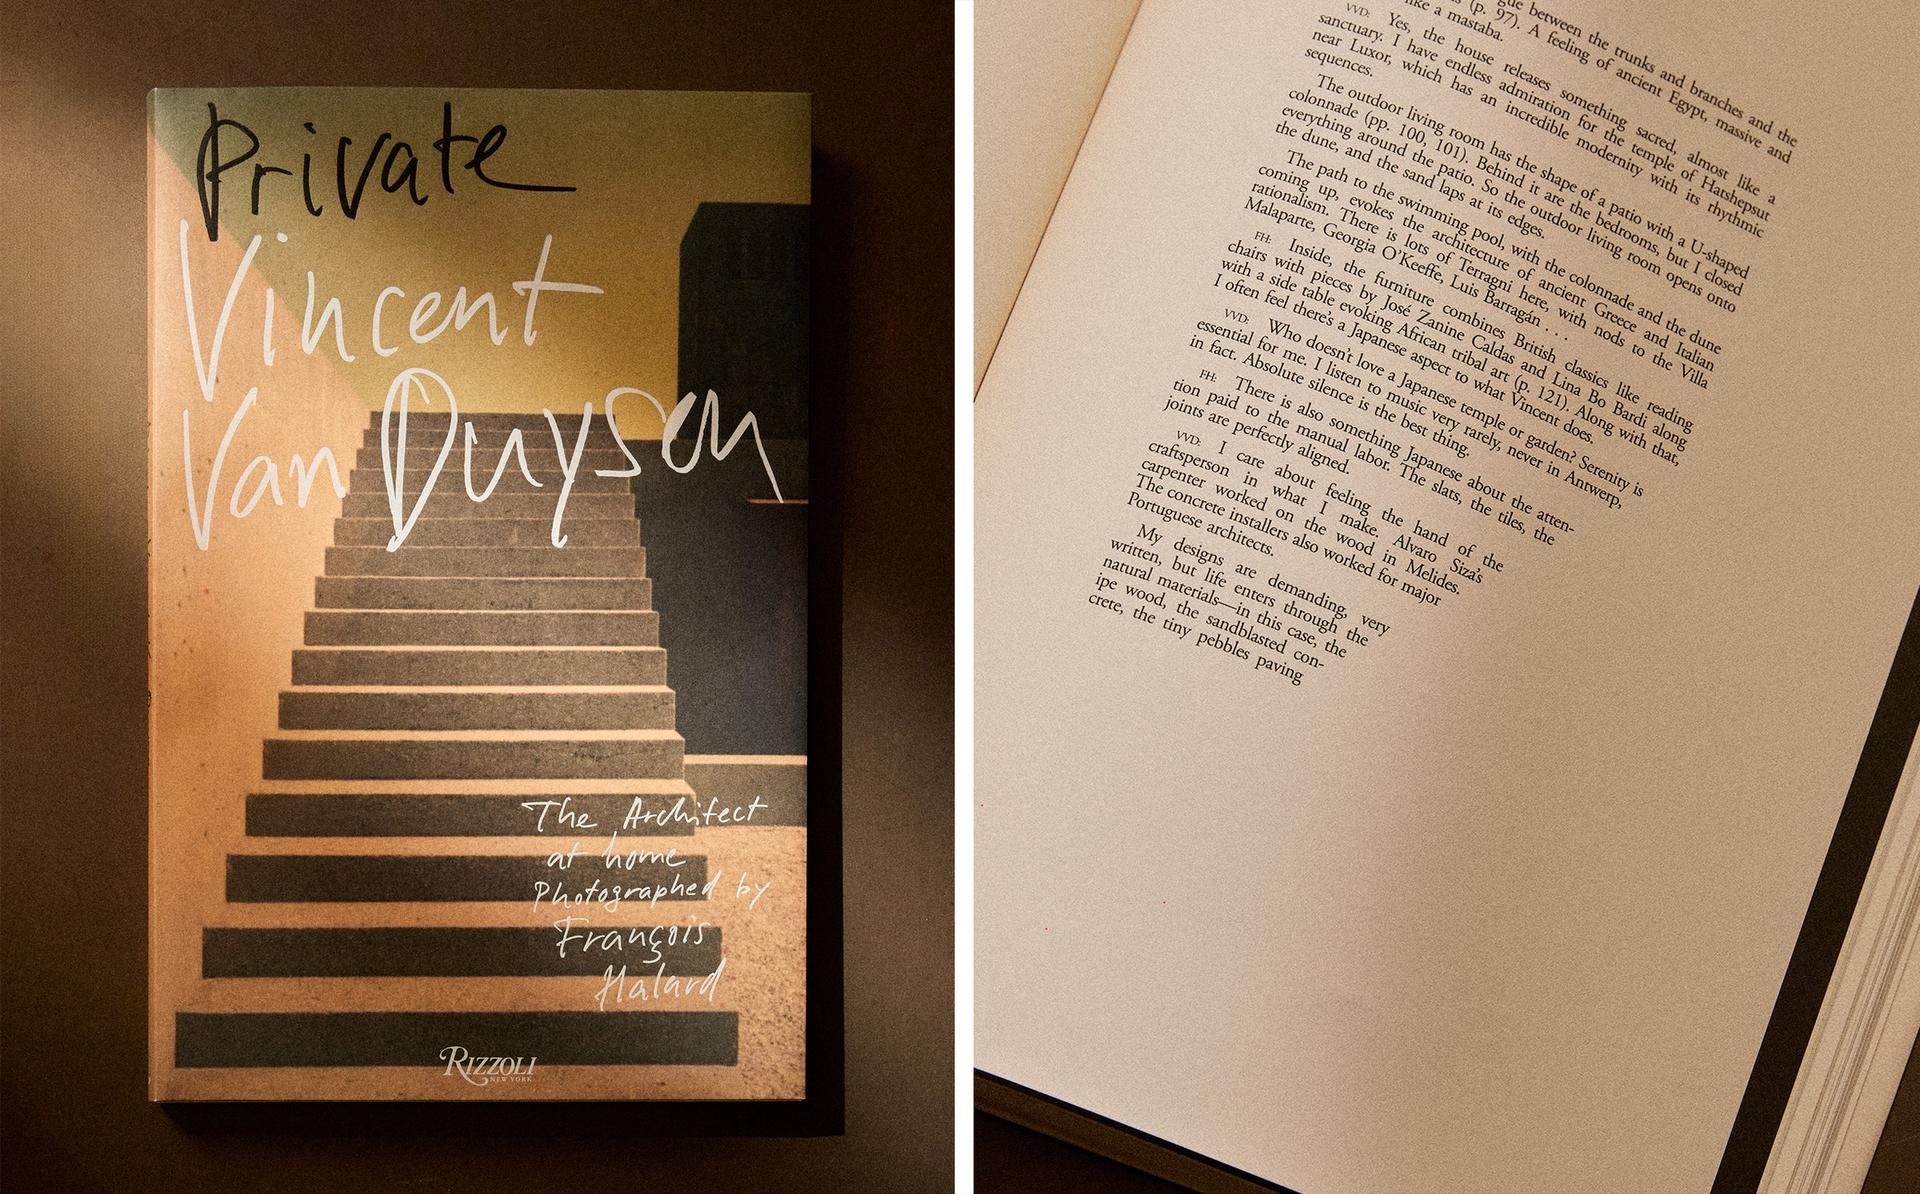 Private
Vincent
Van Duysen
The Architect
at home
Photographed by
François
Halard
RIZZOLI
NEW YORK
gue between the trunks and branches and the
(p. 97). A feeling of ancient Egypt, massive and
like a mastaba.
VVD: Yes, the house releases something sacred, almost like a
sanctuary. I have endless admiration for the temple of Hatshepsut
near Luxor, which has an incredible modernity with its rhythmic
sequences.
The outdoor living room has the shape of a patio with a U-shaped
colonnade (pp. 100, 101). Behind it are the bedrooms, but I closed
everything around the patio. So the outdoor living room opens onto
the dune, and the sand laps at its edges.
The path to the swimming pool, with the colonnade and the dune
coming up, evokes the architecture of ancient Greece and Italian
rationalism. There is lots of Terragni here, with nods to the Villa
Malaparte, Georgia O'Keeffe, Luis Barragán . . .
FH: Inside, the furniture combines British classics like reading
chairs with pieces by José Zanine Caldas and Lina Bo Bardi along
with a side table evoking African tribal art (p. 121). Along with that,
I often feel there's a Japanese aspect to what Vincent does.
VVD: Who doesn't love a Japanese temple or garden? Serenity is
essential for me. I listen to music very rarely, never in Antwerp,
in fact. Absolute silence is the best thing.
FH: There is also something Japanese about the atten-
tion paid to the manual labor. The slats, the tiles, the
joints are perfectly aligned.
VVD: I care about feeling the hand of the
craftsperson in what I make. Alvaro Siza's
carpenter worked on the wood in Melides.
The concrete installers also worked for major
Portuguese architects.
My designs are demanding, very
written, but life enters through the
natural materials—in this case, the
ipe wood, the sandblasted con-
crete, the tiny pebbles paving